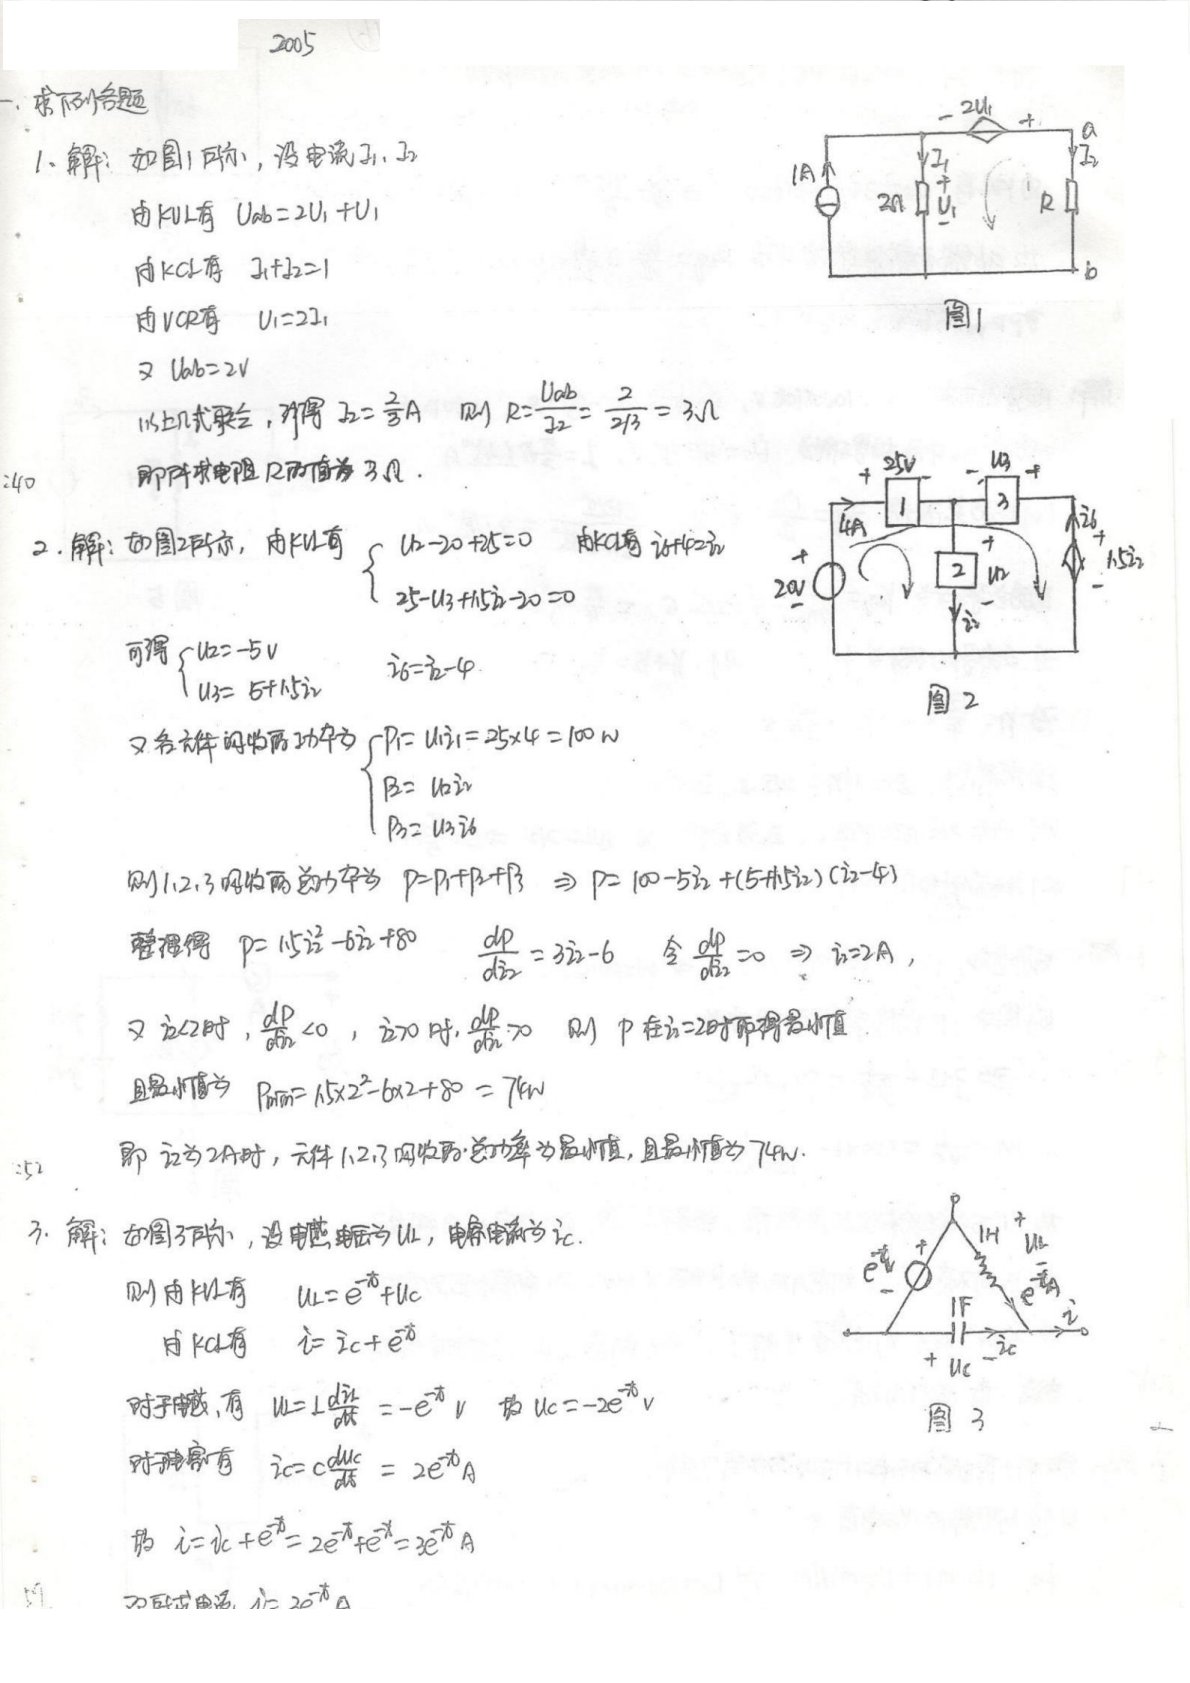 2005
一、求下列各题
1、解：如图1所示，设电流I₁、I₂
由KVL有 Uab=2U₁+U₁
由KCL有 I₁+I₂=1
由VCR有 U₁=2I₁
又 Uab=2V
以上几式联合，可得 I₂=2/3A 则 R=Uab/I₂=2/(2/3)=3Ω
即所求电阻R的值为3Ω.
- 2U₁ +
a
1A
I₁
I₂
2Ω
+
U₁
-
R
b
图1
:40
2.解：如图2所示，由KVL有 { U₂-20+25=0 由KCL有 i₆+4=i₂
25-U₃+1.5i₂-20=0
可得 { U₂=-5V i₆=i₂-4
U₃=5+1.5i₂
又各元件吸收的功率为 { P₁=U₁i₁=25×4=100W
P₂=U₂i₂
P₃=U₃i₆
则1,2,3吸收的总功率为 P=P₁+P₂+P₃ ⇒ P=100-5i₂+(5+1.5i₂)(i₂-4)
整理得 P=1.5i₂²-6i₂+80 dP/di₂=3i₂-6 令 dP/di₂=0 ⇒ i₂=2A，
又 i₂<2时，dP/di₂<0，i₂>0时，dP/di₂>0 则 P在i₂=2时取得最小值
且最小值为 Pmin=1.5×2²-6×2+80=74W
即 i₂为2A时，元件1,2,3吸收的总功率为最小值，且最小值为74W.
+ 25V -
- U₃ +
1
3
4A
i₆
+
20V
-
2
+
U₂
-
+
1.5i₂
-
i₂
图2
:52
3.解：如图3所示，设电感电压为UL，电容电流为ic.
则由KVL有 UL=e⁻ᵗ+Uc
由KCL有 i=ic+e⁻ᵗ
对于电感，有 UL=L diL/dt=-e⁻ᵗV 故 Uc=-2e⁻ᵗV
对于电容有 ic=C dUc/dt=2e⁻ᵗA
故 i=ic+e⁻ᵗ=2e⁻ᵗ+e⁻ᵗ=3e⁻ᵗA
即所求电流 i=3e⁻ᵗA
+
e⁻ᵗV
-
1H
+
UL
-
e⁻ᵗA
1F
i
+ Uc -
ic
图3